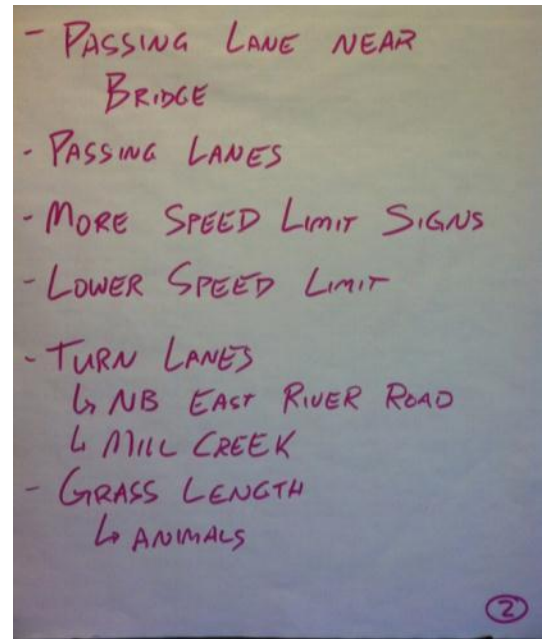 - PASSING LANE NEAR
BRIDGE
- PASSING LANES
- MORE SPEED LIMIT SIGNS
- LOWER SPEED LIMIT
- TURN LANES
↳ NB EAST RIVER ROAD
↳ MILL CREEK
- GRASS LENGTH
↳ ANIMALS
2